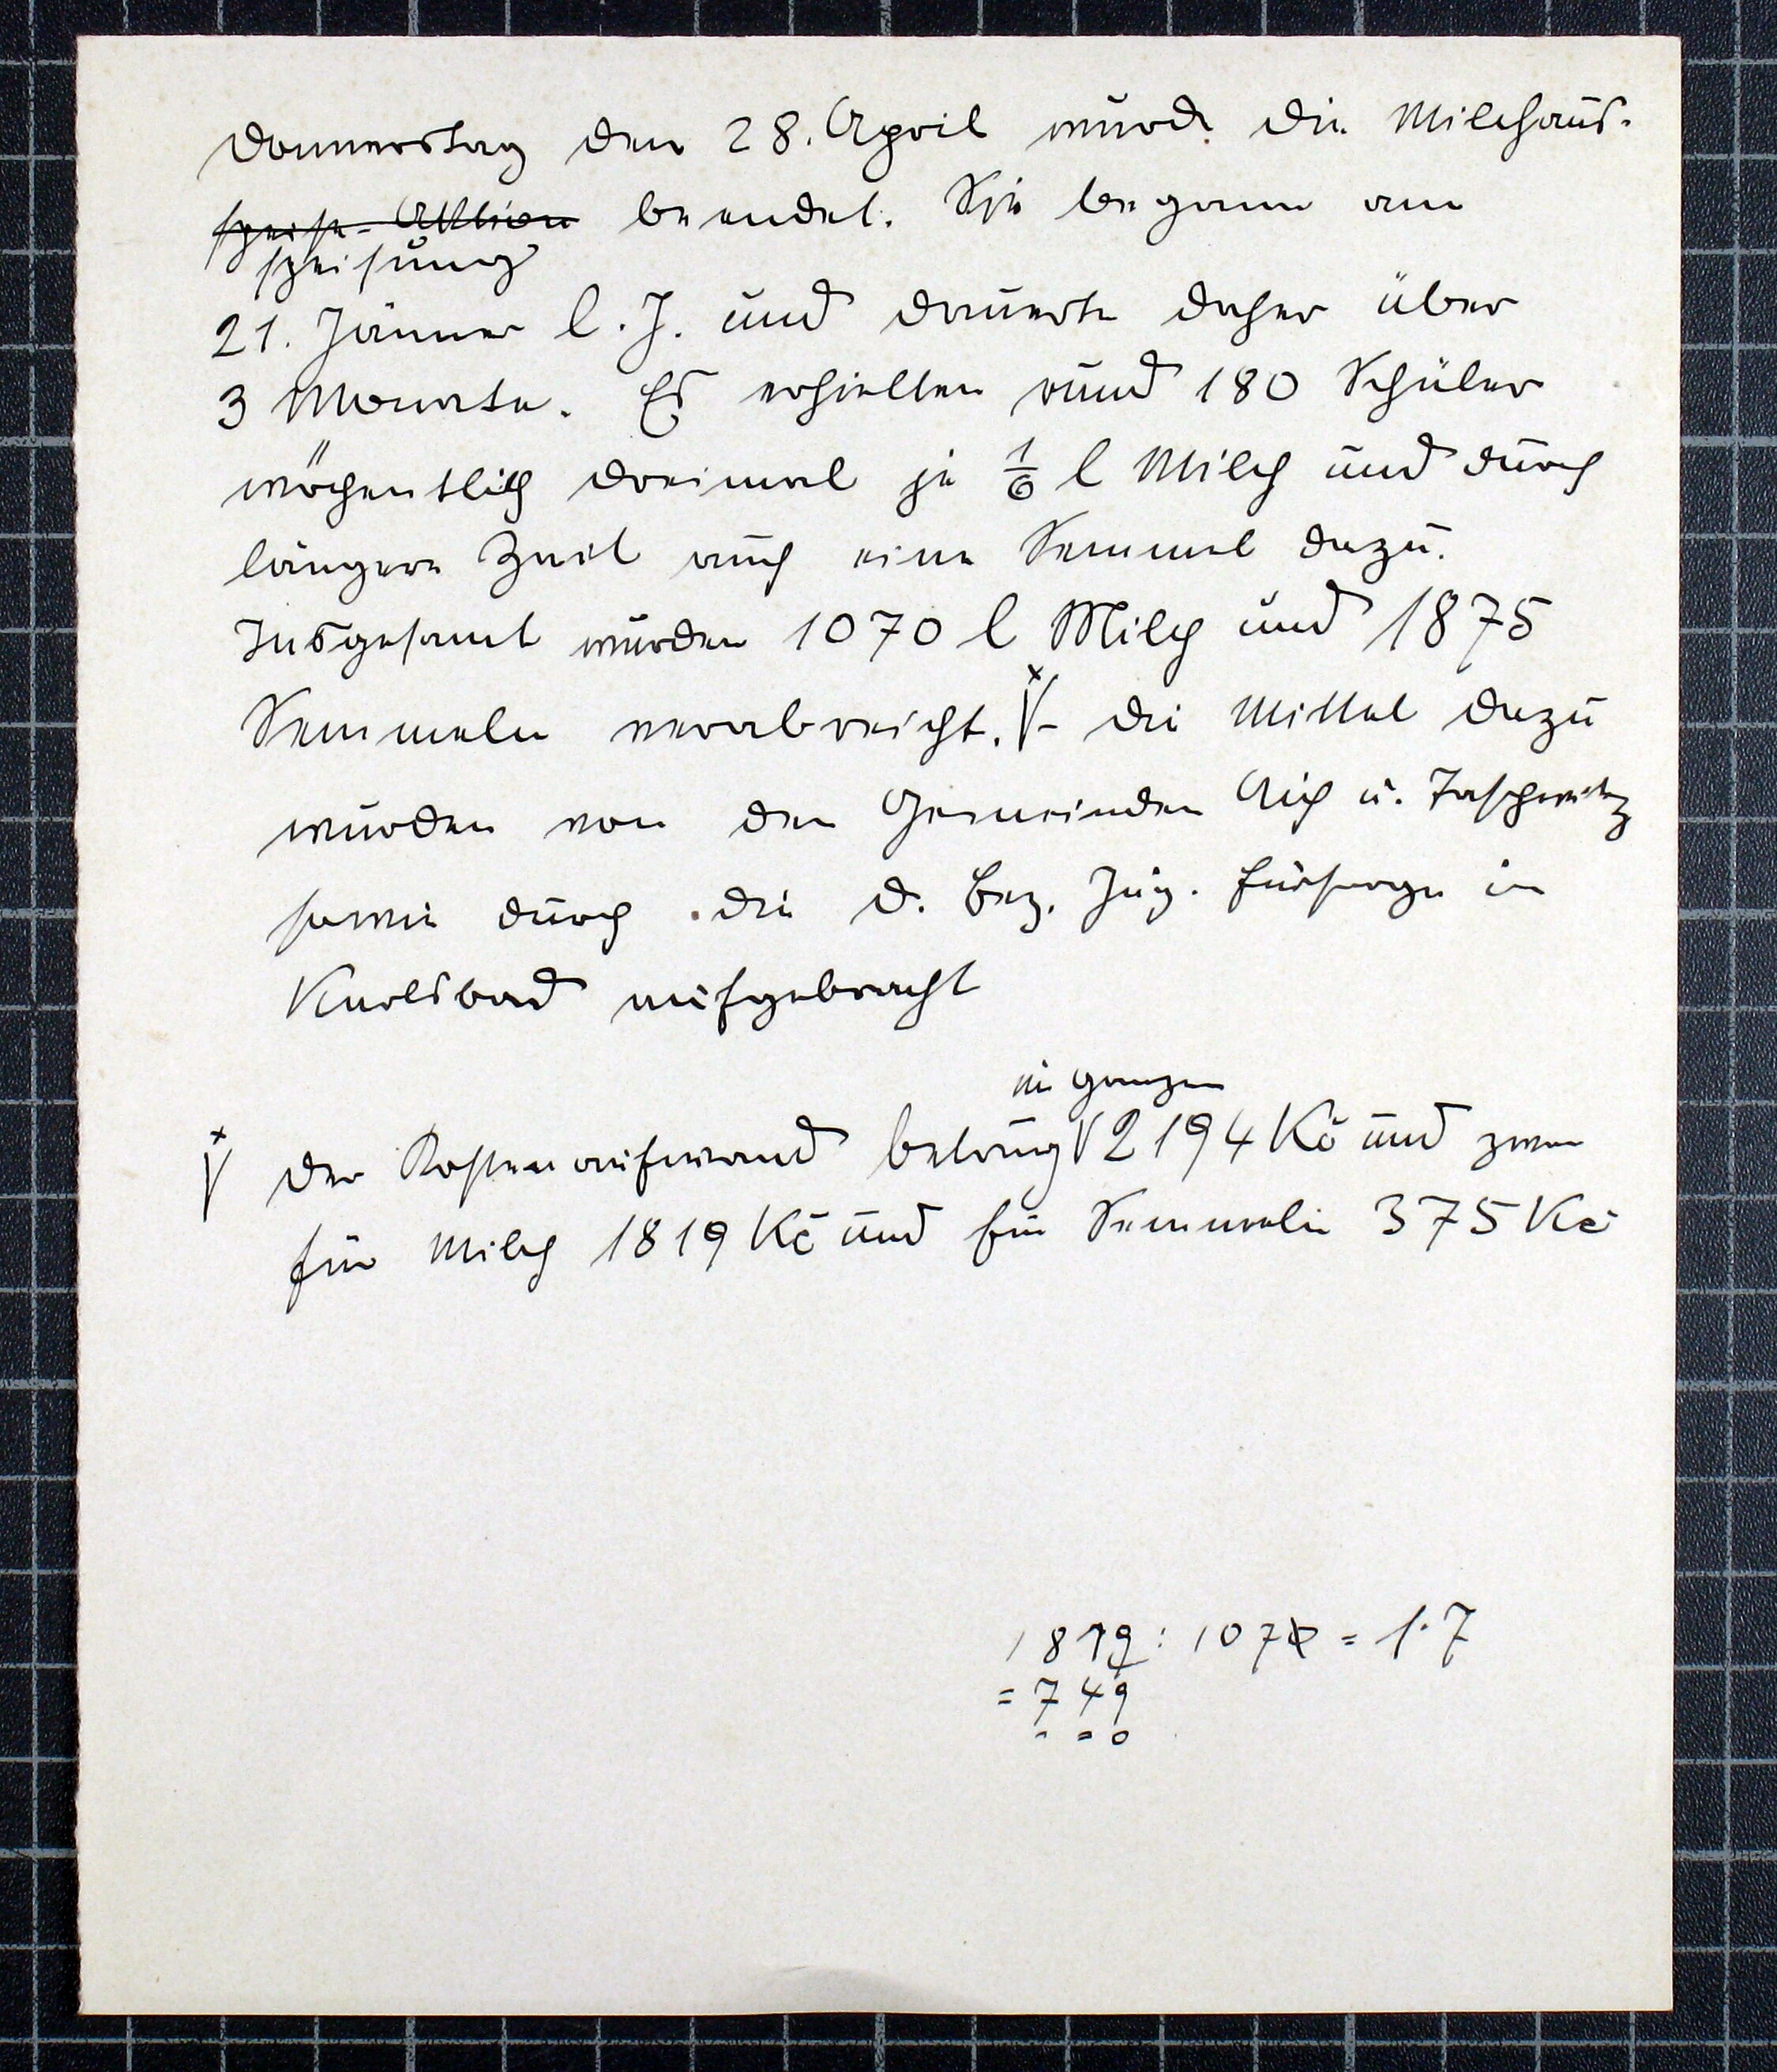 Donnerstag den 28. April wurde die Milchaus-
speise-Aktion beendet. Sie begann am
speisung
21. Jänner l. J. und dauerte daher über
3 Monate. Es erhielten rund 180 Schüler
wöchentlich dreimal je 1/6 l Milch und durch
längere Zeit auch eine Semmel dazu.
Insgesamt wurden 1070 l Milch und 1875
Semmeln verabreicht. x/- Die Mittel dazu
wurden von den Gemeinden Aich u. Taschwitz
sowie durch die d. Bez. Jug. Fürsorge in
Karlsbad aufgebracht
im ganzen
x/ Der Kostenaufwand betrug 2194 Kč und zwar
für Milch 1819 Kč und für Semmeln 375 Kč
1819 : 1070 = 1·7
= 749
- = 0